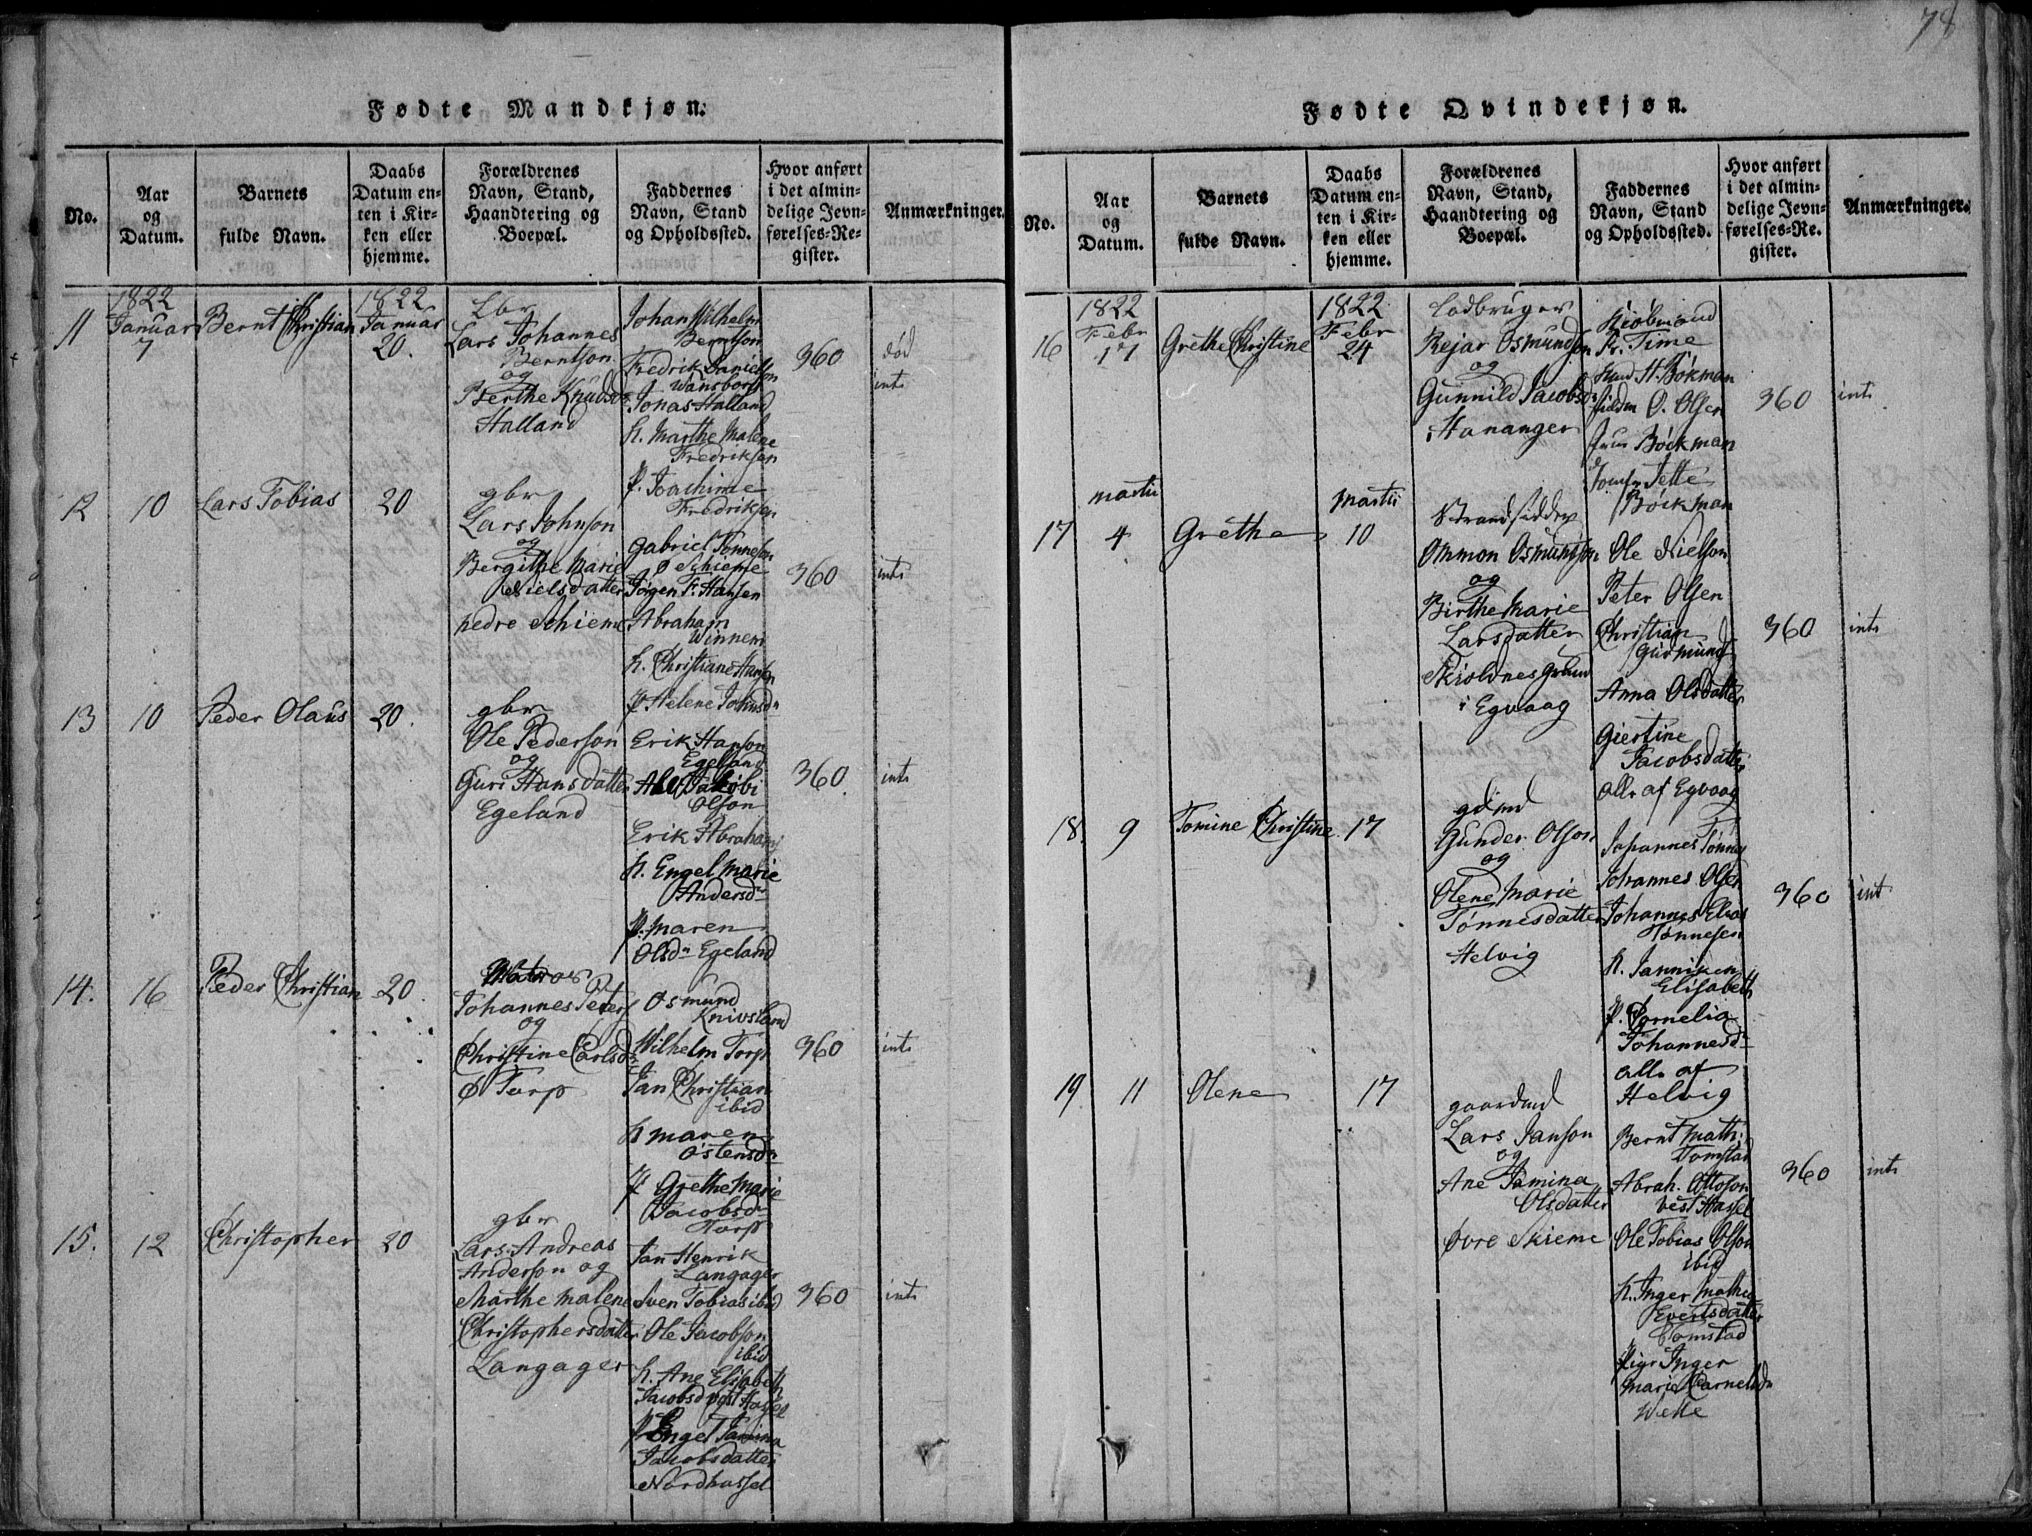 74
Fødte Mandkjøn.
No.
Aar
og
Datum.
Barnets
fulde Navn.
Daabs
Datum en-
ten i Kir-
ken eller
hjemme.
Forældrenes
Navn, Stand,
Haandtering og
Boepæl.
Faddernes
Navn, Stand
og Opholdssted.
Hvor anført
i det almin-
delige Jevn-
førelses-Re-
gister.
Anmærkninger.
11
1822
Januar
7
Bernt Christian
1822
Januar
20.
Lbr
Lars Johannes
Berntson
og
Berthe Knudsdr
Halland
Johan Wilhelm
Berntson
Fredrik Danielson
Wansborg
Jonas Halland
K. Marthe Malene
Fredriksen
P. Joachime
Fredriksen
360
død
int
12
10
Lars Tobias
20
gbr
Lars Johnson
og
Bergithe Marie
Nielsdatter
nedre Schieme
Gabriel Tønneson
Ø Schieme
Jørgen Fr. Hansen
Abraham
Winnem
K. Christiane Hansen
P Helene Johnsdr
360
int
13
10
Peder Olaus
20.
gbr
Ole Pederson
og
Guri Hansdatter
Egeland
Erik Hanson
Egeland
Jakobi
Olson
Erik Abrahams
K. Engel Marie
Andersdr
P. Maren
Olsdr Egeland
360
int
14.
16
Peder Christian
20.
Matros
Johannes Peters
og
Christine Carlsdr
Ø Torp
Osmund
Knivsland
Wilhelm Torp
Jan Christian
ibid
K Maren
Ostensdr
P Grethe Marie
Jacobsdr
Torp
360
int
15.
12
Christopher
20
gbr
Lars Andreas
Anderson og
Marthe Malene
Christophersdatter
Langager
Jan Henrik
Langager
Sven Tobias ibid
Ole Jacobson
ibid
K. Ane Elisabeth
Jacobsd vest Hassel
P Engel Tamina
Jacobsdatter
Nordhassel
360
int
Fødte Qvindekjøn.
No.
Aar
og
Datum.
Barnets
fulde Navn.
Daabs
Datum en-
ten i Kir-
ken eller
hjemme.
Forældrenes
Navn, Stand,
Haandtering og
Boepæl.
Faddernes
Navn, Stand
og Opholdssted.
Hvor anført
i det almin-
delige Jevn-
førelses-Re-
gister.
Anmærkninger.
16
1822
Febr
17
Grethe Christine
1822
Febr
24
Lodbruger
Rejar Osmundson
og
Gunnild Jacobsdr
Hananger
Kiøbmand
Fr. Time
H. Bøkman
O. Olsen
Bøckman
Jomfr Jette
Bøckman
360
int
17
Martii
4
Grethe
Martii
10
Strandsidder
Ommon Osmundson
og
Birthe Marie
Larsdatter
Skiolnes Grund
i Egvaag
Ole Nielson
Peter Olsen
Christian
Gudmund
Anna Olsdatter
Giertine
Jacobsdatter
alle af Egvaag
360
int
18.
9
Tomine Christine
17
gdmd
Gunder Olson
og
Olene Marie
Tønnesdatter
Helvig
Johannes Tønnes
Johannes Olsen
Johannes Elias
Tønnesen
K. Janniken
Elisabeth
P. Cornelia
Johannesdr
alle af
Helvig
360
int
19.
11
Olene
17
gaardmd
Lars Janson
og
Ane Tamina
Olsdatter
Øvre Skieme
Bernt Math:
Tomstad
Abrah. Ottoson
Vest Hassel
Ole Tobias Olson
ibid
K. Inger Mathea
Evertsdatter
Tomstad
Pige Inger
Marie Cornelidr
360
int